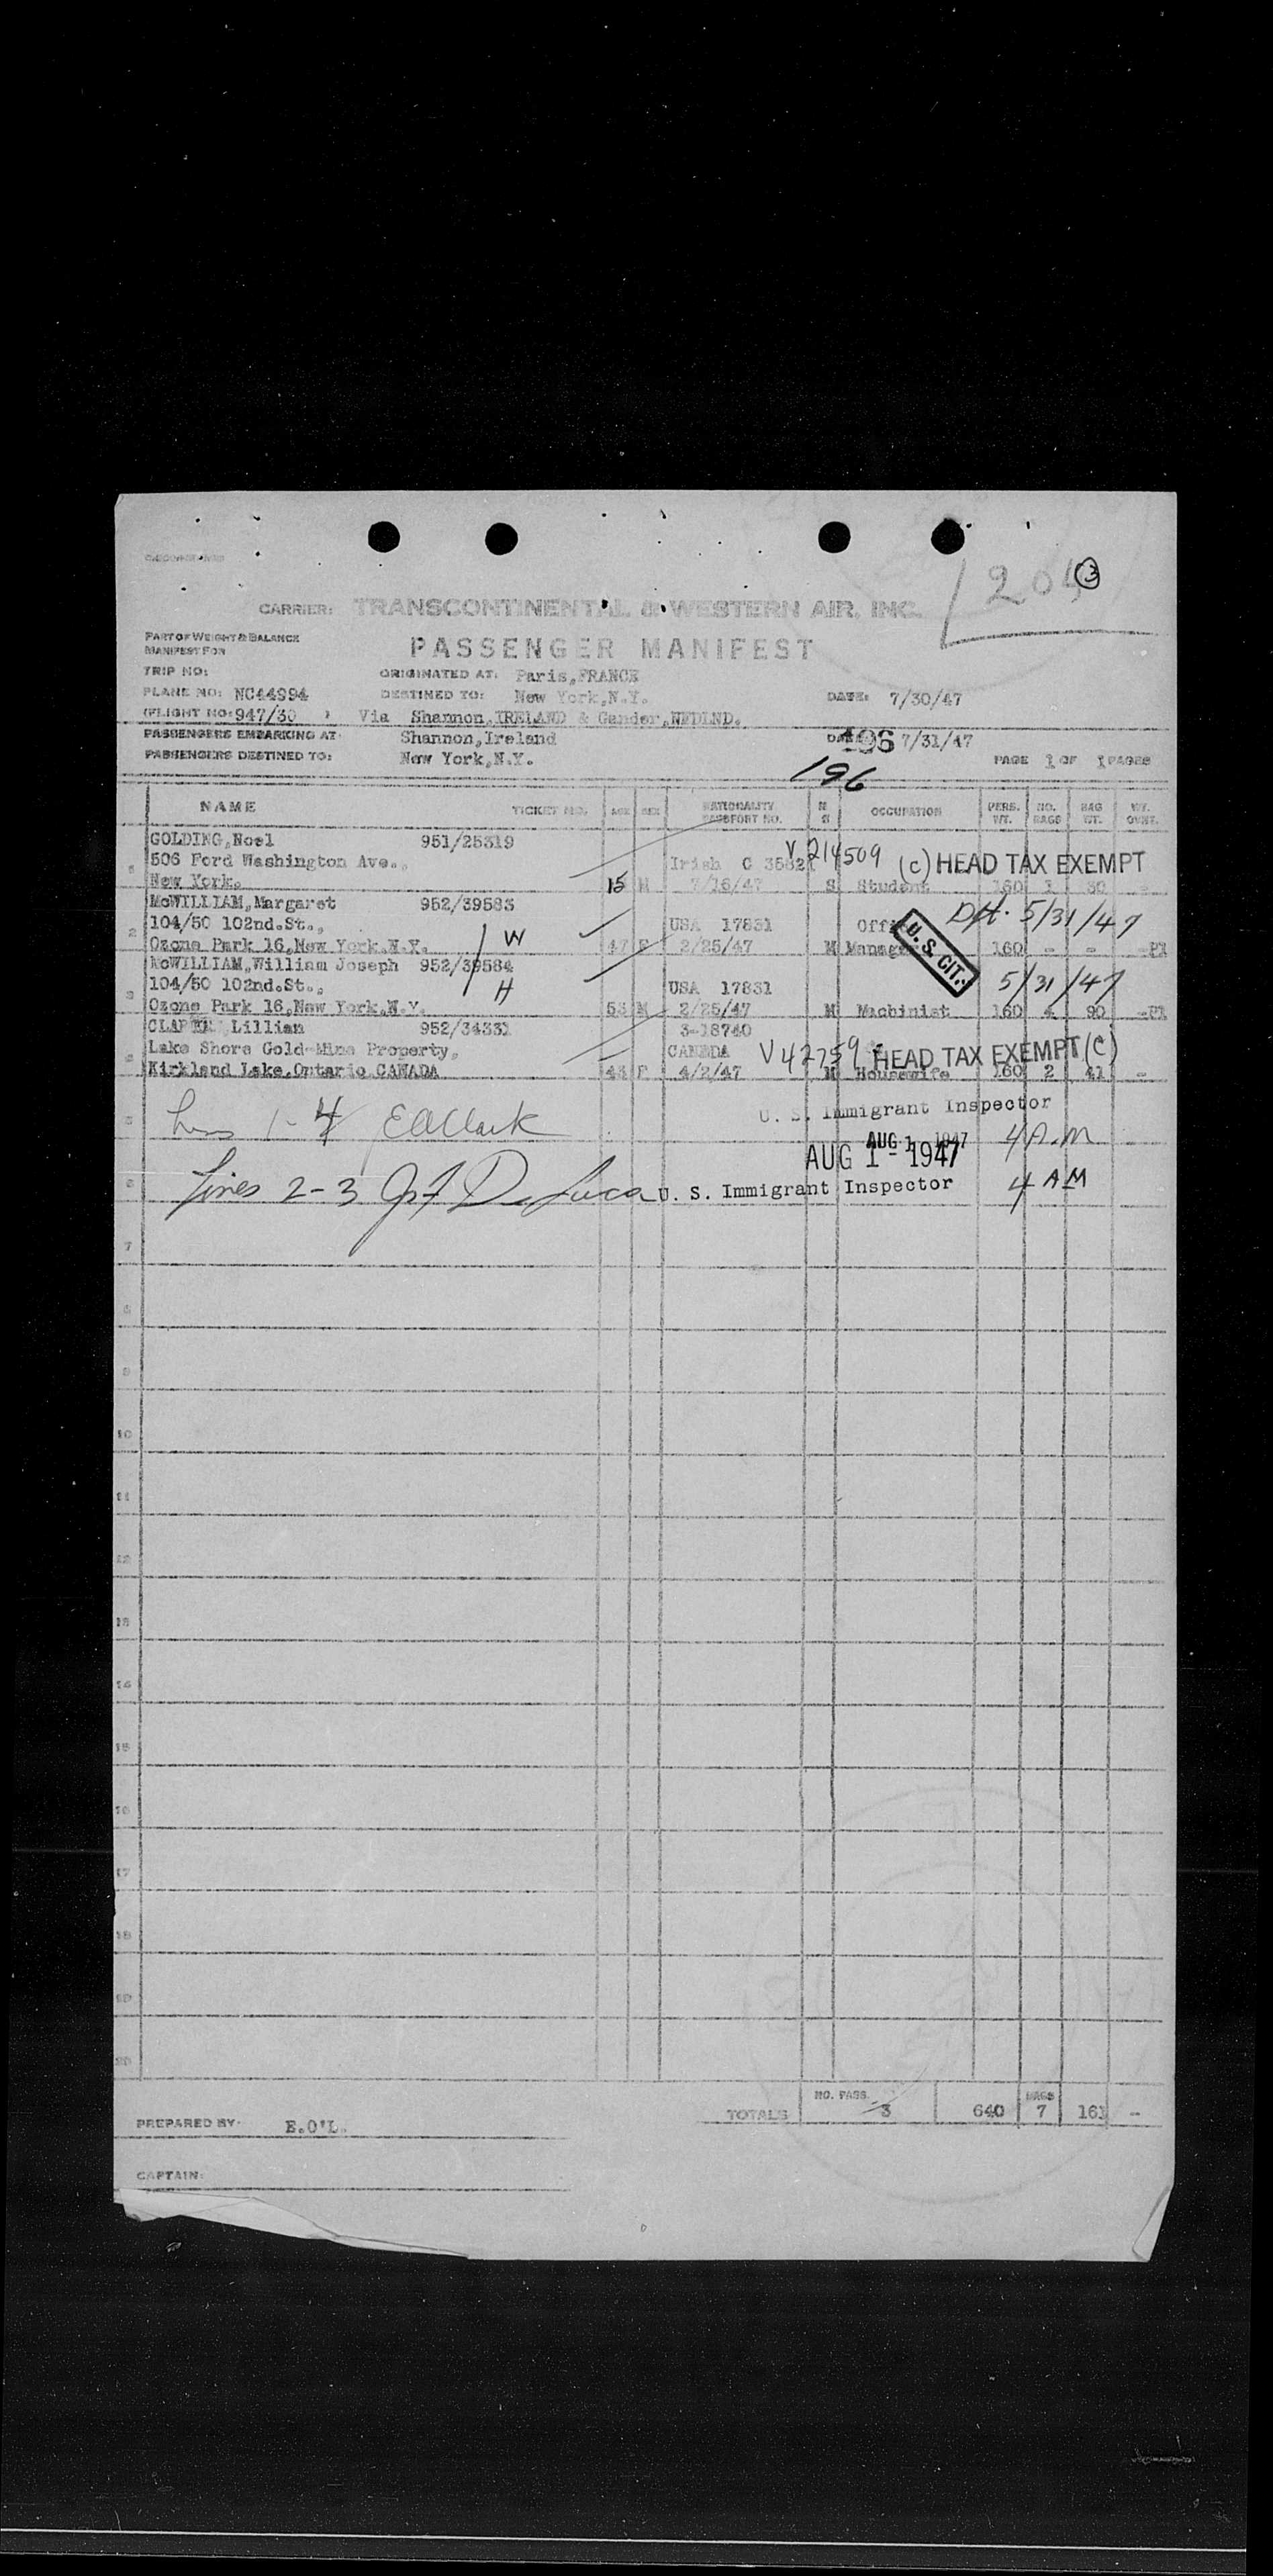 1204 3
CARRIER: TRANSCONTINENTAL & WESTERN AIR, INC.
PART OF WEIGHT & BALANCE
MANIFEST FOR
PASSENGER MANIFEST
TRIP NO:
ORIGINATED AT: Paris,FRANCE
PLANE NO: NC44994 DESTINED TO: New York,N.Y. DATE: 7/30/47
(FLIGHT NO: 947/30 ) Via Shannon,IRELAND & Gander,NFDLND.
PASSENGERS EMBARKING AT: Shannon,Ireland DATE: 7/31/47
196
PASSENGERS DESTINED TO: New York,N.Y. PAGE 1 OF 1 PAGES
196
NAME TICKET NO. AGE SEX NATIONALITY PASSPORT NO. OCCUPATION PERS. WT. NO. BAGS BAG WT.
GOLDING,Noel 951/25319
506 Ford Washington Ave., Irish C V 214509 (C) HEAD TAX EXEMPT
New York. 15 M 7/16/47 S Student 160 1 30 -
McWILLIAM,Margaret 952/39583 Dpt. 5/31/47
2 104/50 102nd.St., USA 17831
Ozone Park 16,New York.N.Y. W 47 F 2/25/47 M Manager 160 - -
U.S. CIT.
McWILLIAM,William Joseph 952/39584 5/31/47
3 104/50 102nd.St., H USA 17831
Ozone Park 16,New York.N.Y. 53 M 2/25/47 M Machinist 160 4 90
Lillian 952/34331 3-18740
Lake Shore Gold Mine Property, CANADA V 42759 HEAD TAX EXEMPT (C)
Kirkland Lake,Ontario CANADA 43 F 4/2/47 M Housewife 160 2 41 -
U. S. Immigrant Inspector
5 Lines 1-4 EAClark AUG 1 1947 4 A.M
AUG 1 - 1947
6 Lines 2-3 De Luca U. S. Immigrant Inspector 4 AM
7
8
9
10
11
12
13
14
15
16
17
18
19
20
NO. PASS. BAGS
TOTALS 3 640 7 161 -
PREPARED BY: E.O'L.
CAPTAIN: